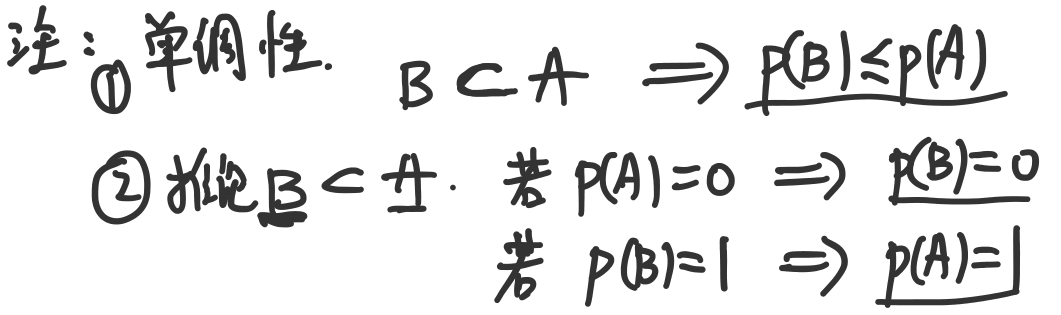 注: ① 单调性. B ⊂ A ⇒ p(B) ≤ p(A)
② 推论 B ⊂ A. 若 p(A)=0 ⇒ p(B)=0
若 p(B)=1 ⇒ p(A)=1